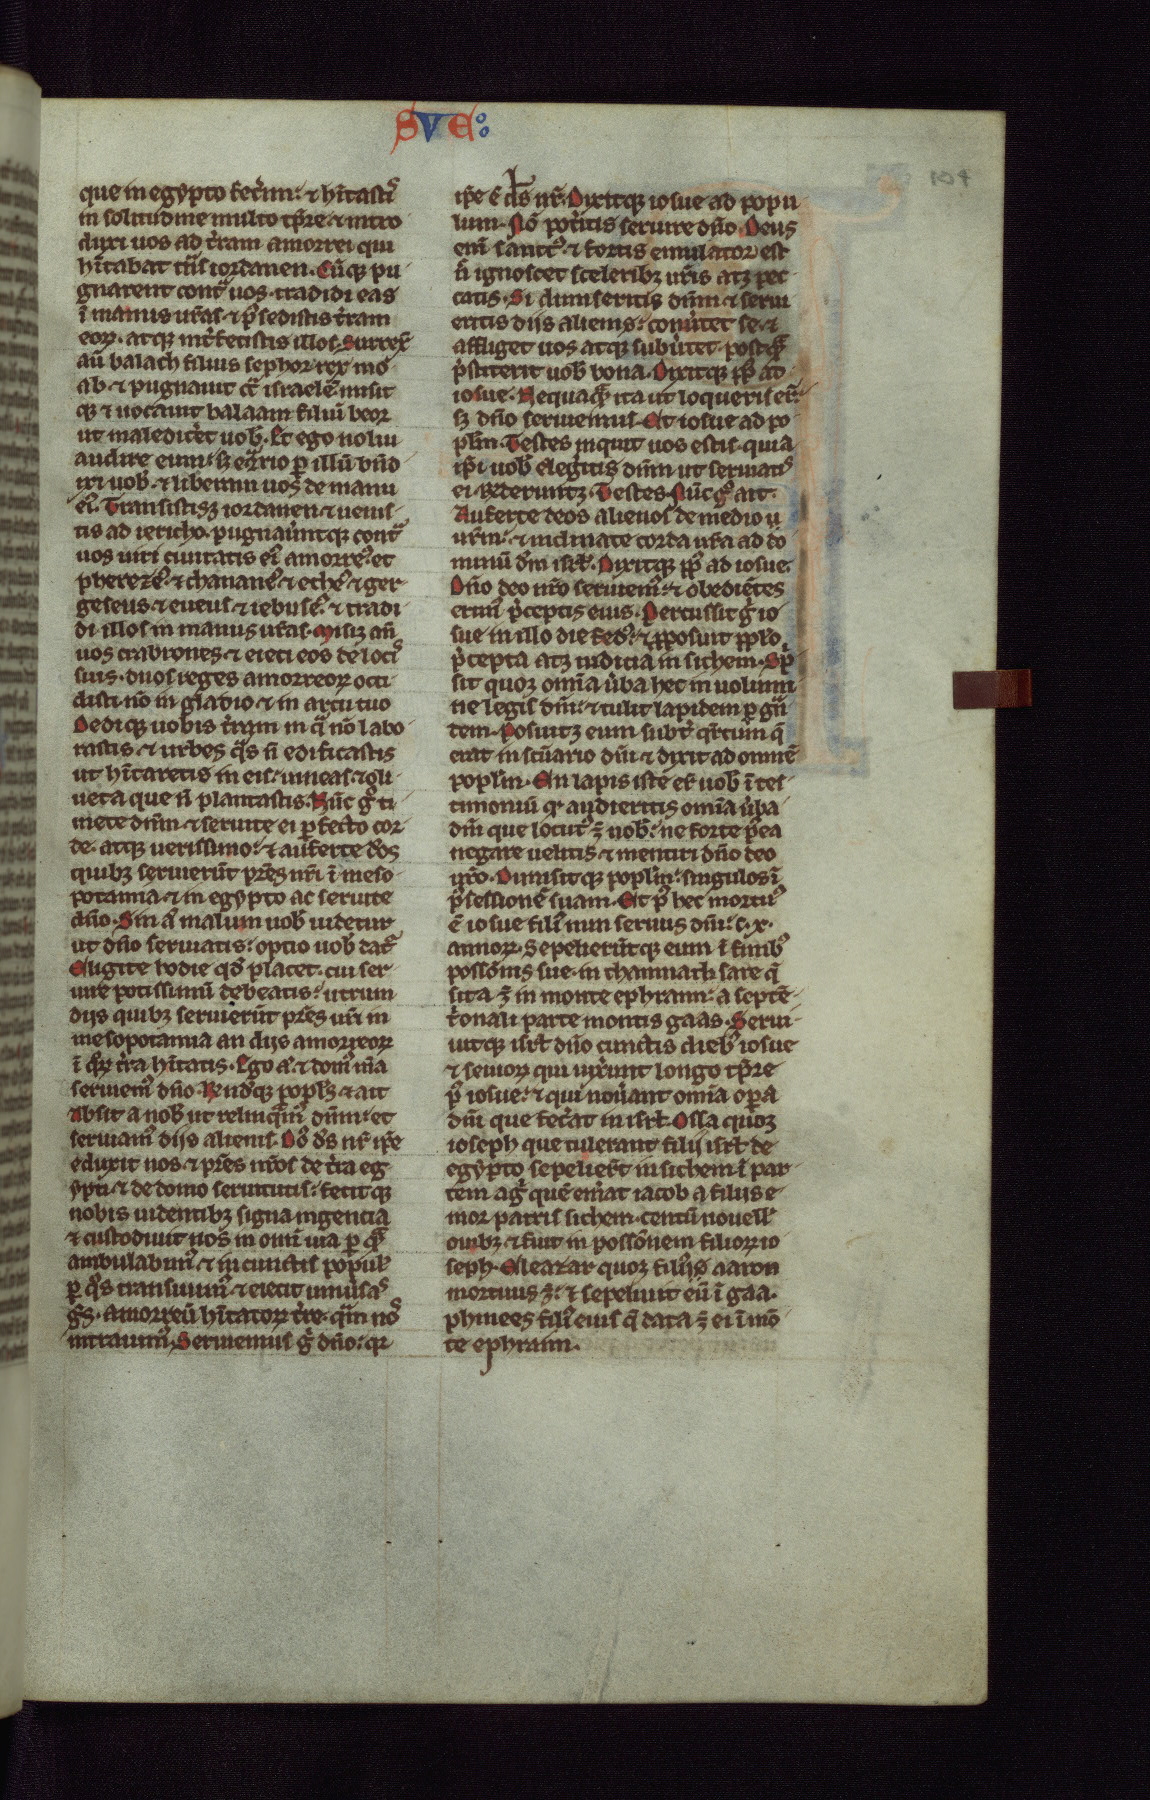 SVE
104
que in egypto fec̾im: ⁊ hītastꝭ
in solitudine multo tp̄re ⁊ intro
duxi uos ad t̾ram amorrei qui
hītabat tn̄s iordanen. Cūqꝫ pu
gnarent cont͛ uos. tradidi eas
ī manus ur̄as. ⁊ p̄sedistis t̾ram
eoꝝ. atqꝫ int̾fecistis illos. Surrex̾
aū balach filius sephor rex mo
ab. ⁊ pugnauit ct͛ israelē. misit
qꝫ ⁊ uocauit balaam filiū beor
ut maledic̾et uob̄. Et ego nolui
audire eum: sꝫ eq̾rio ꝑ illū bn̄d
ixi uob̄. ⁊ liberaui uos de manu
eiꝰ. Transistisqꝫ iordanen ⁊ uenis
tis ad iericho. pugnaūntqꝫ cont͛
uos uiri ciuitatis eiꝰ amorreꝰ. et
pherezeꝰ. ⁊ chananeꝰ ⁊ etheꝰ ⁊ ger
geseus ⁊ eueus ⁊ iebuseꝰ. ⁊ tradi
di illos in manus ur̄as. Misiqꝫ an̄
uos crabrones. ⁊ eieci eos de locꝭ
suis. duos reges amorreoꝝ. occi
disti. nō in gladio ⁊ in arcu tuo
Dediqꝫ uobis t̾ram in q͛ nō labo
rastis. ⁊ urbes qͦs n̄ edificastis
ut hītaretis in eis. uineas. ⁊ oli
ueta que n̄ plantastis. Nūc ḡ ti
mete dn̄m ⁊ seruite ei ꝑfecto cor
de. atqꝫ uerissimo: ⁊ auferte d̄os
quibꝫ seruierūt pr̄es ur̄i ī meso
potamia ⁊ in egypto ac seruite
dn̄o. Sin aͧ malum uob̄ uidetur
ut dn̄o seruiatis: optio uob̄ dat̾
Eligite hodie qd̄ placet. cui ser
uire potissimū debeatis: utrum
dijs quibꝫ seruierūt pr̄es ur̄i in
mesopotamia an dijs amorreoꝝ
ī qͦꝝ t̾ra hītatis. Ego aͧ. ⁊ domꝰ m̄a
seruiemꝰ dn̄o. R̄nd̾qꝫ popl̄s ⁊ ait
Absit a nob̄ ut relinq͛mꝰ dn̄m: et
seruiamꝰ dijs alienis. Dn̄s dˢ nr̄ ip̄e
eduxit nos ⁊ pr̄es nr̄os de t̾ra eg
ypti. ⁊ de domo seruitutis: fecitqꝫ
nobis uidentibꝫ signa ingencia
⁊ custodiuit nos in omī uia ꝑ q͛
ambulabimꝰ. ⁊ in cunctis popul̾
ꝑ qͦs transiuimꝰ. ⁊ eiecit uniu̾sas
gn̄s. amorreū hītatoꝝ t̾re. q͛m nos
intrauimꝰ. Seruiemus ḡ dn̄o: qꝛ
ip̄e ē dˢ nr̄. Dixitqꝫ iosue ad popu
lum. Nō pot̾itis seruire dn̄o. Deus
enī sanctꝰ ⁊ fortis emulator est
n̄ ignoscet sceleribꝫ ur̄is atqꝫ pec
catis. Si dimiseritis dn̄m ⁊ serui
eritis dijs alienis: conu̾tet se. ⁊
affliget uos atqꝫ subu̾tet. postq͛
p̄stiterit uob̄ bona. Dixitqꝫ pp̄s ad
iosue. Nequaq͛ ita ut loqueris er̄:
sꝫ dn̄o seruiemus. Et iosue ad po
pl̄m. Testes inquit uos estis. quia
ip̄i uob̄ elegitis dn̄m ut seruiatꝭ
ei. R̄nderuntqꝫ. Testes. Nūc gͦ ait.
Auferte deos alienos de medio u
ur̄m: ⁊ inclinate corda ur̄a ad do
minū dm̄ isrl̄. Dixitqꝫ pp̄s ad iosue.
Dn̄o deo nr̄o seruiemꝰ: ⁊ obediētes
erimꝰ p̄ceptis eius. Percussit ḡ io
sue in illo die fedꝰ. ⁊ ꝓposuit ppl̄o
p̄cepta atqꝫ iudicia in sichem. Sc͛p
sit quoqꝫ omīa u̾ba hec in uolumi
ne legis dn̄i: ⁊ tulit lapidem ꝑg͛n
dem. Posuitqꝫ eum subt̾ q̾rcum q̄
erat in sc̄uario dn̄i. ⁊ dixit ad omnē
popl̄m. En lapis iste er̾ uob̄ ī tes
timoniū qͩ audieritis omīa u̾ba
dn̄i que locutꝰ ē nob̄: ne forte p̄ea
negare uelitis ⁊ mentiri dn̄o deo
ur̄o. Dimisitqꝫ popl̄m. singulos ī
p̄sessionē suam. Et p̾ hec mortuꝰ
ē iosue filiꝰ nun seruus dn̄i: c. x.
annoꝝ. Sepelierūtqꝫ eum ī finibꝰ
possōnis sue. in thamnath sare q̄
sita ē in monte ephraim: a septē
t̾onali parte montis gaas. Serui
uitqꝫ isrl̄ dn̄o cunctis diebꝰ iosue
⁊ senioꝝ qui uix̾unt longo tp̄re
p̾ iosue: ⁊ qui nou̾ant omīa oꝑa
dn̄i que fec̾at in isrl̄. Ossa quoqꝫ
ioseph que tulerant filij isrl̄ de
egypto sepelier̄t in sichem ī par
tem ag̾ quē em̾at iacob a filijs e
mor patris sichem. centū nouell̾
ouibꝫ ⁊ fuit in possōnem filioꝝ io
seph. Eleazar quoqꝫ filiꝰ aaron
mortuus ē: ⁊ sepeliuit eū ī gaa.
phinees filiꝰ eius q̄ data ē ei ī mō
te ephraim.